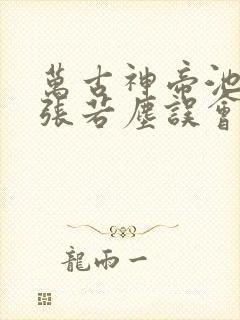 萬古神帝池
張若塵誤會
龍雨一